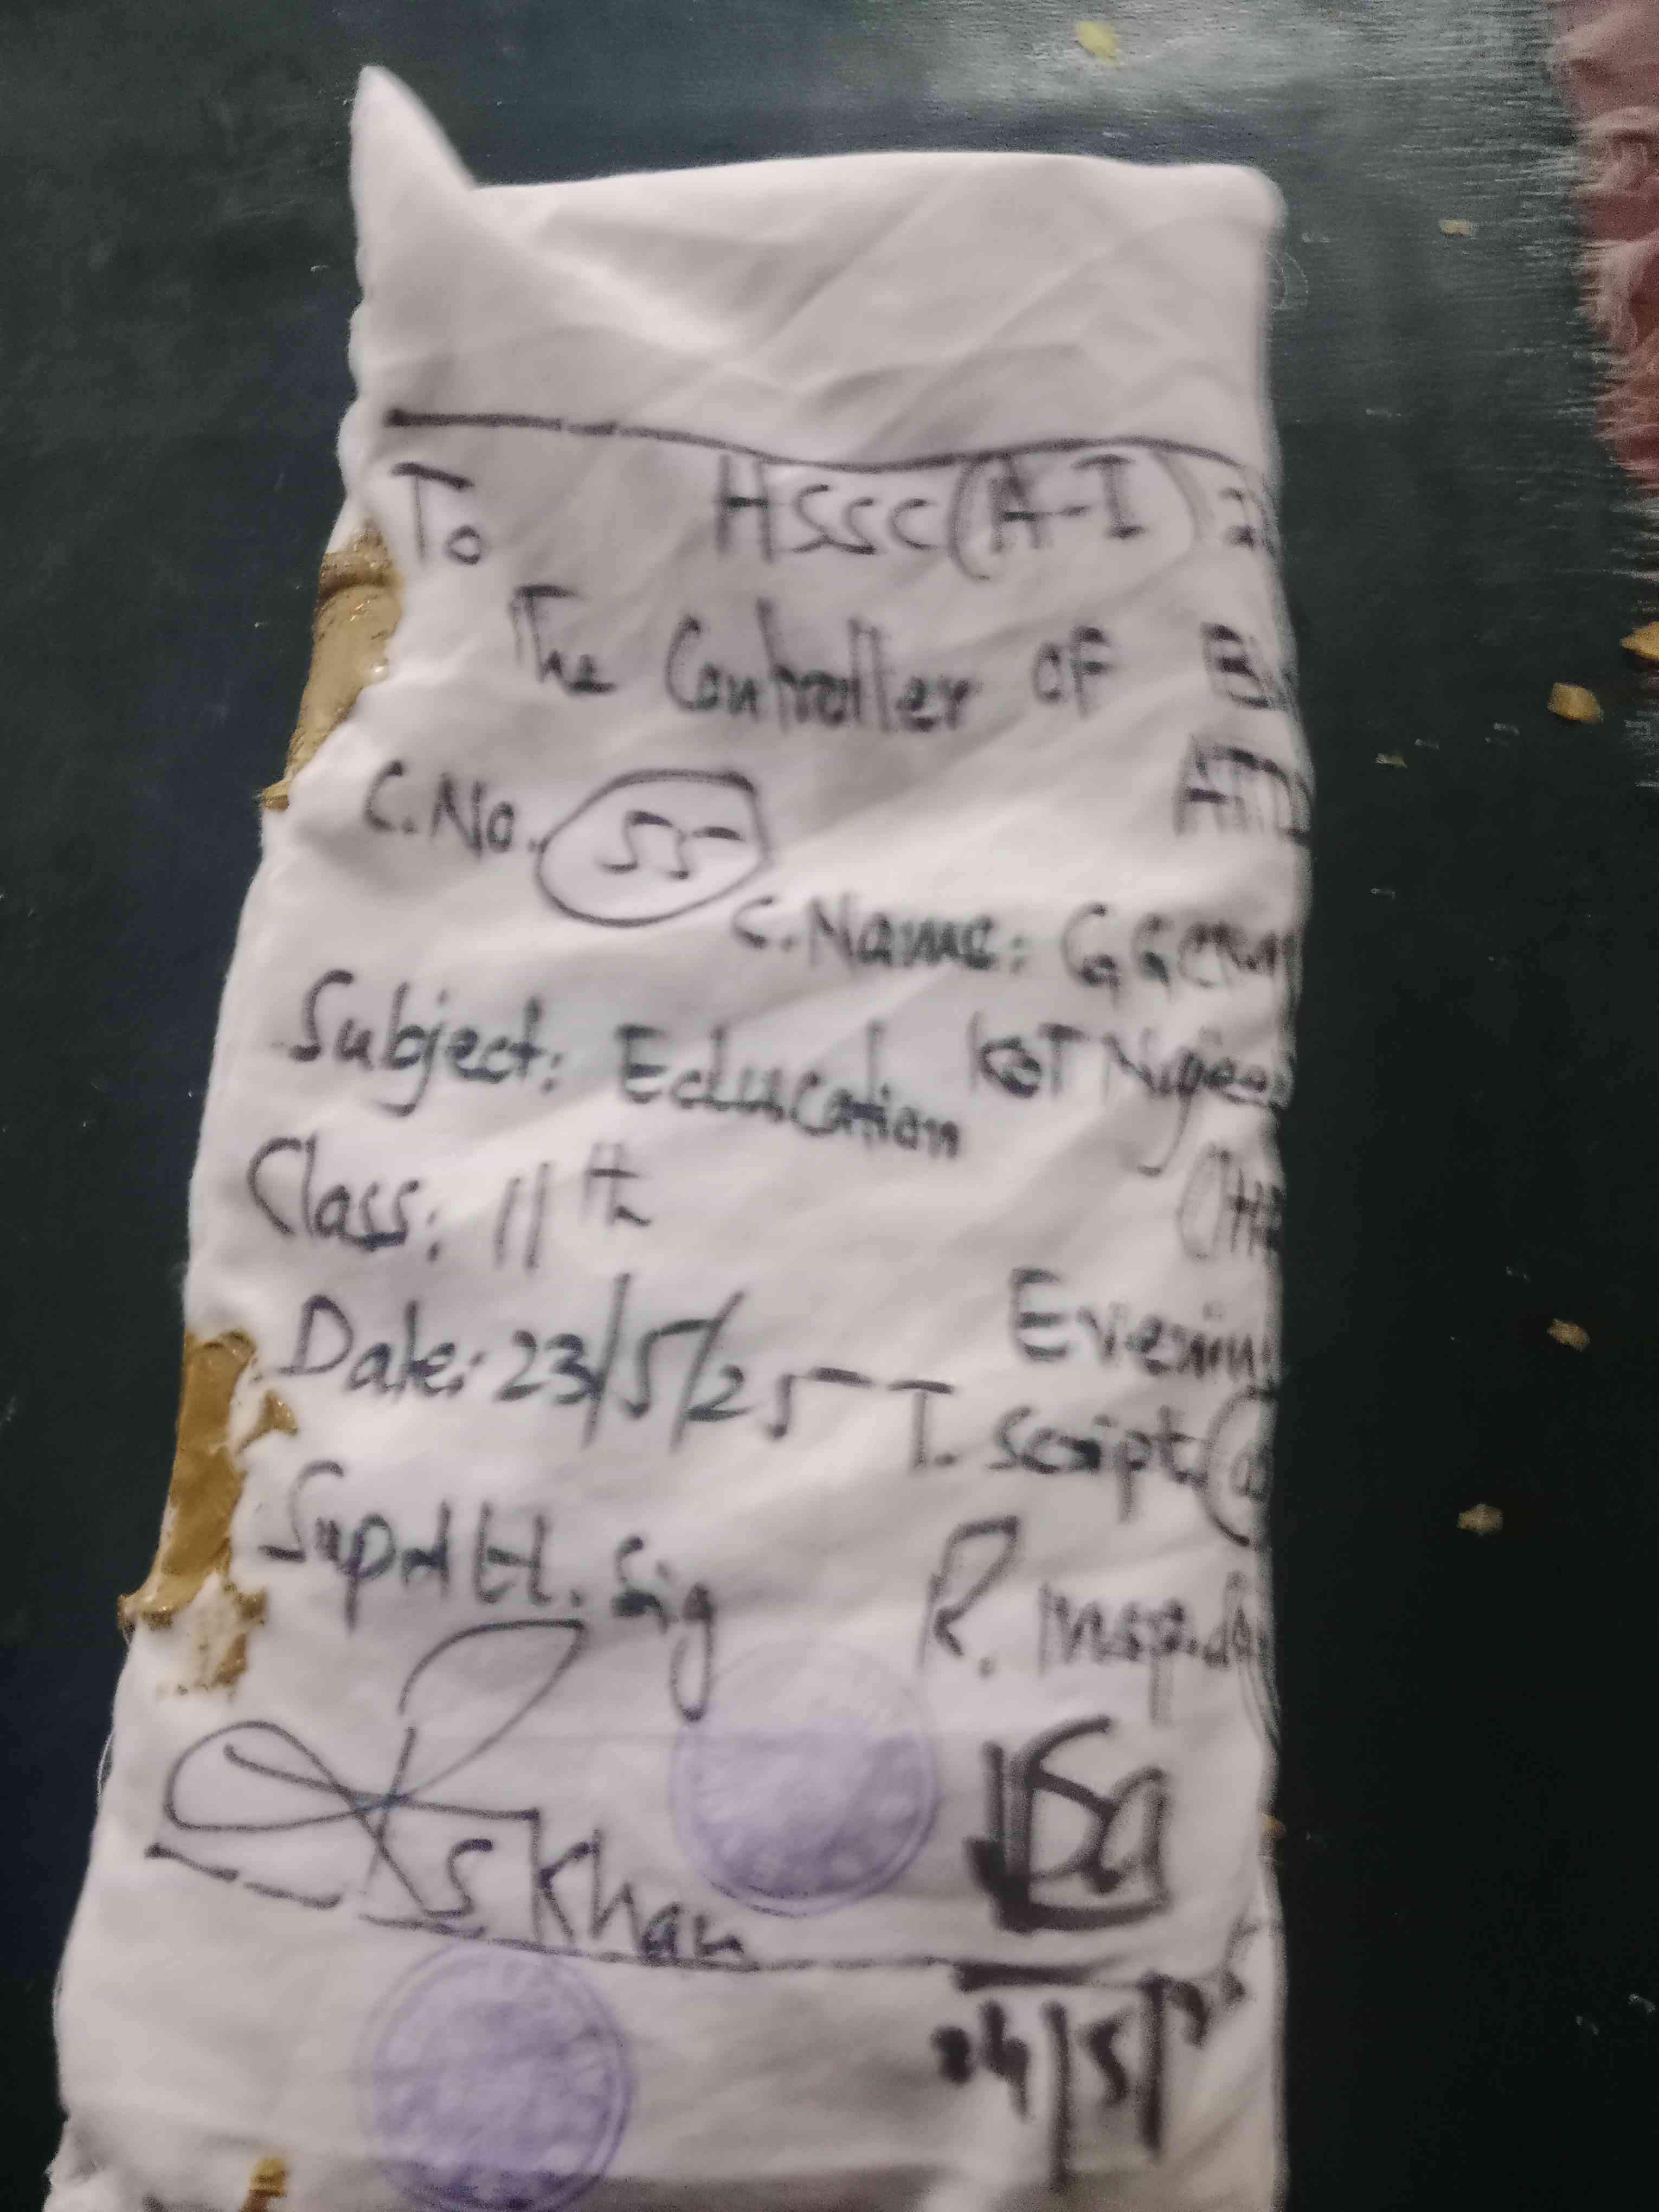 To HSSC (A-I)
The Controller of
C.No. 55
C. Name:
Subject: Education KOT
Class: 11th
Evening
Date: 23/5/25
T. Script
Supdtt. Sig
R. Insp.
S Khan
24/5/